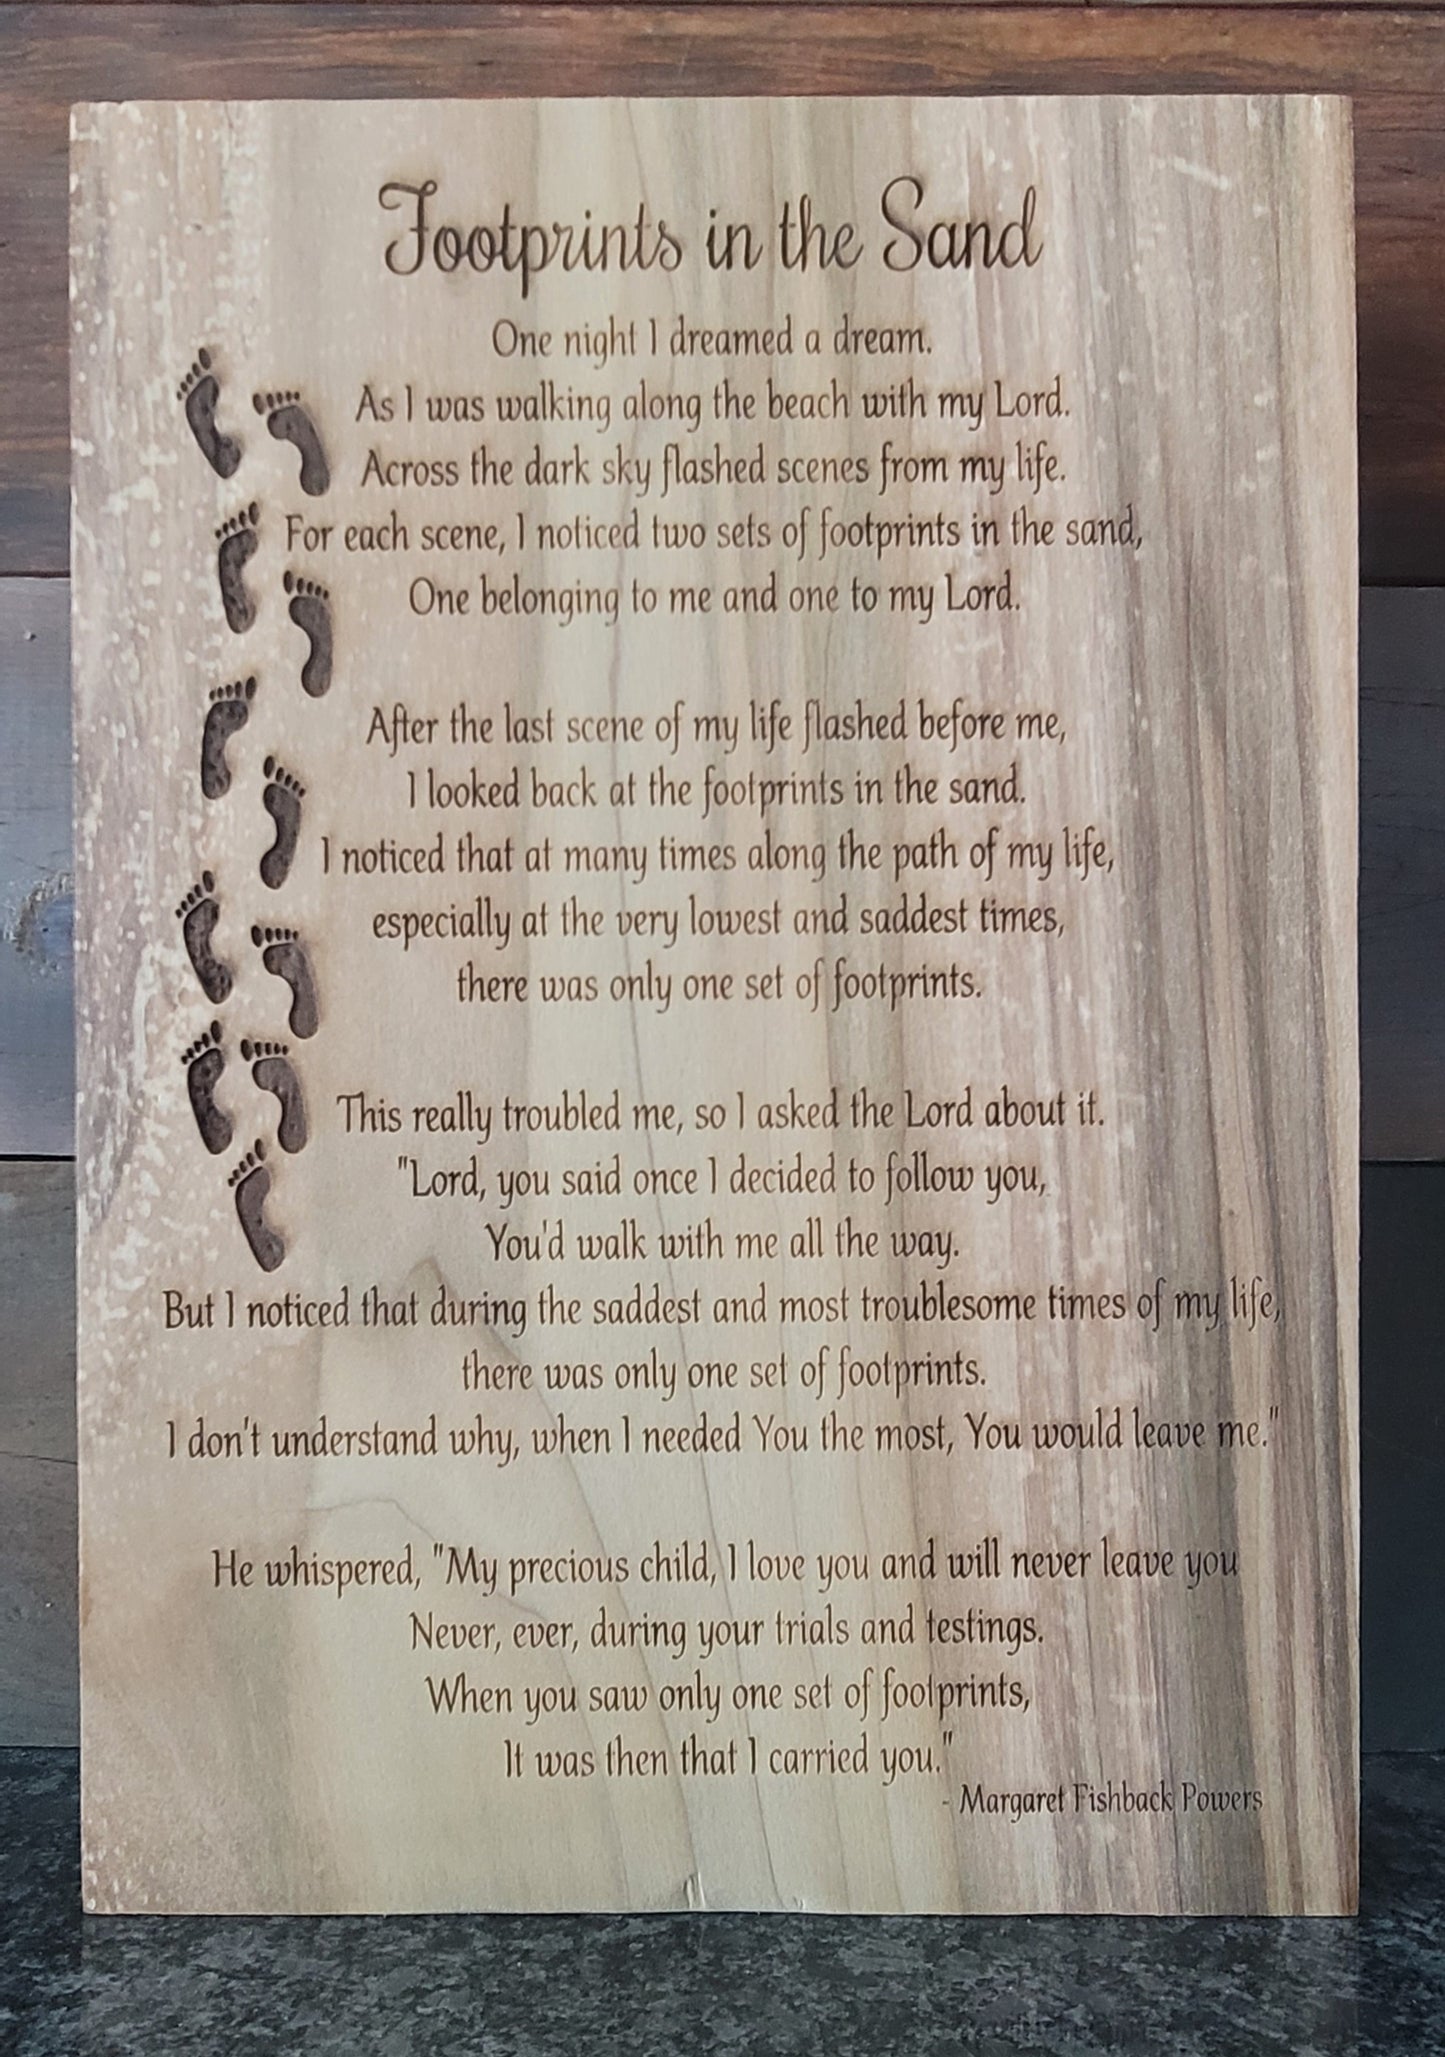 Footprints in the Sand
One night I dreamed a dream.
As I was walking along the beach with my Lord.
Across the dark sky flashed scenes from my life.
For each scene, I noticed two sets of footprints in the sand,
One belonging to me and one to my Lord.
After the last scene of my life flashed before me,
I looked back at the footprints in the sand.
I noticed that at many times along the path of my life,
especially at the very lowest and saddest times,
there was only one set of footprints.
This really troubled me, so I asked the Lord about it.
"Lord, you said once I decided to follow you,
You'd walk with me all the way.
But I noticed that during the saddest and most troublesome times of my life,
there was only one set of footprints.
I don't understand why, when I needed You the most, You would leave me."
He whispered, "My precious child, I love you and will never leave you
Never, ever, during your trials and testings.
When you saw only one set of footprints,
It was then that I carried you."
- Margaret Fishback Powers